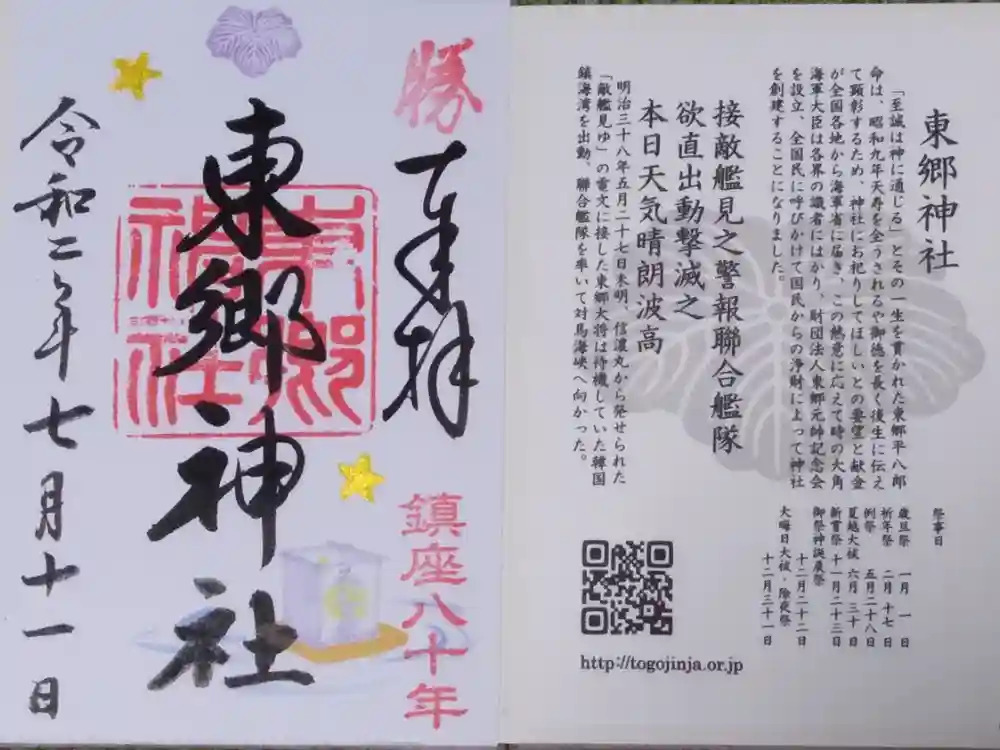 東郷神社
「至誠は神に通じる」とその一生を貫かれた東郷平八郎
命は、昭和九年天寿を全うされるや御徳を長く後生に伝え
て顕彰するため、神社にお祀りしてほしいとの要望と献金
が全国各地から海軍省に届き、この熱意に応えて時の大角
海軍大臣は各界の識者にはかり、財団法人東郷元帥記念会
を設立、全国民に呼びかけて国民からの浄財によって神社
を創建することになりました。
接敵艦見之警報聯合艦隊
欲直出動撃滅之
本日天気晴朗波高
明治三十八年五月二十七日未明、信濃丸から発せられた
「敵艦見ゆ」の電文に接した東郷大将は待機していた韓国
鎮海湾を出動、聯合艦隊を率いて対馬海峡へ向かった。
祭事日
歳旦祭 一月 一 日
祈年祭 二月 十七 日
例祭 五月二十八日
夏越大祓 六月 三十 日
新嘗祭 十一月二十三日
御祭神誕辰祭
十二月二十二日
大晦日大祓・除夜祭
十二月三十一 日
http://togojinja.or.jp
勝
奉拝
鎮座八十年
東郷神社
東郷
神社
令和二年七月十一日